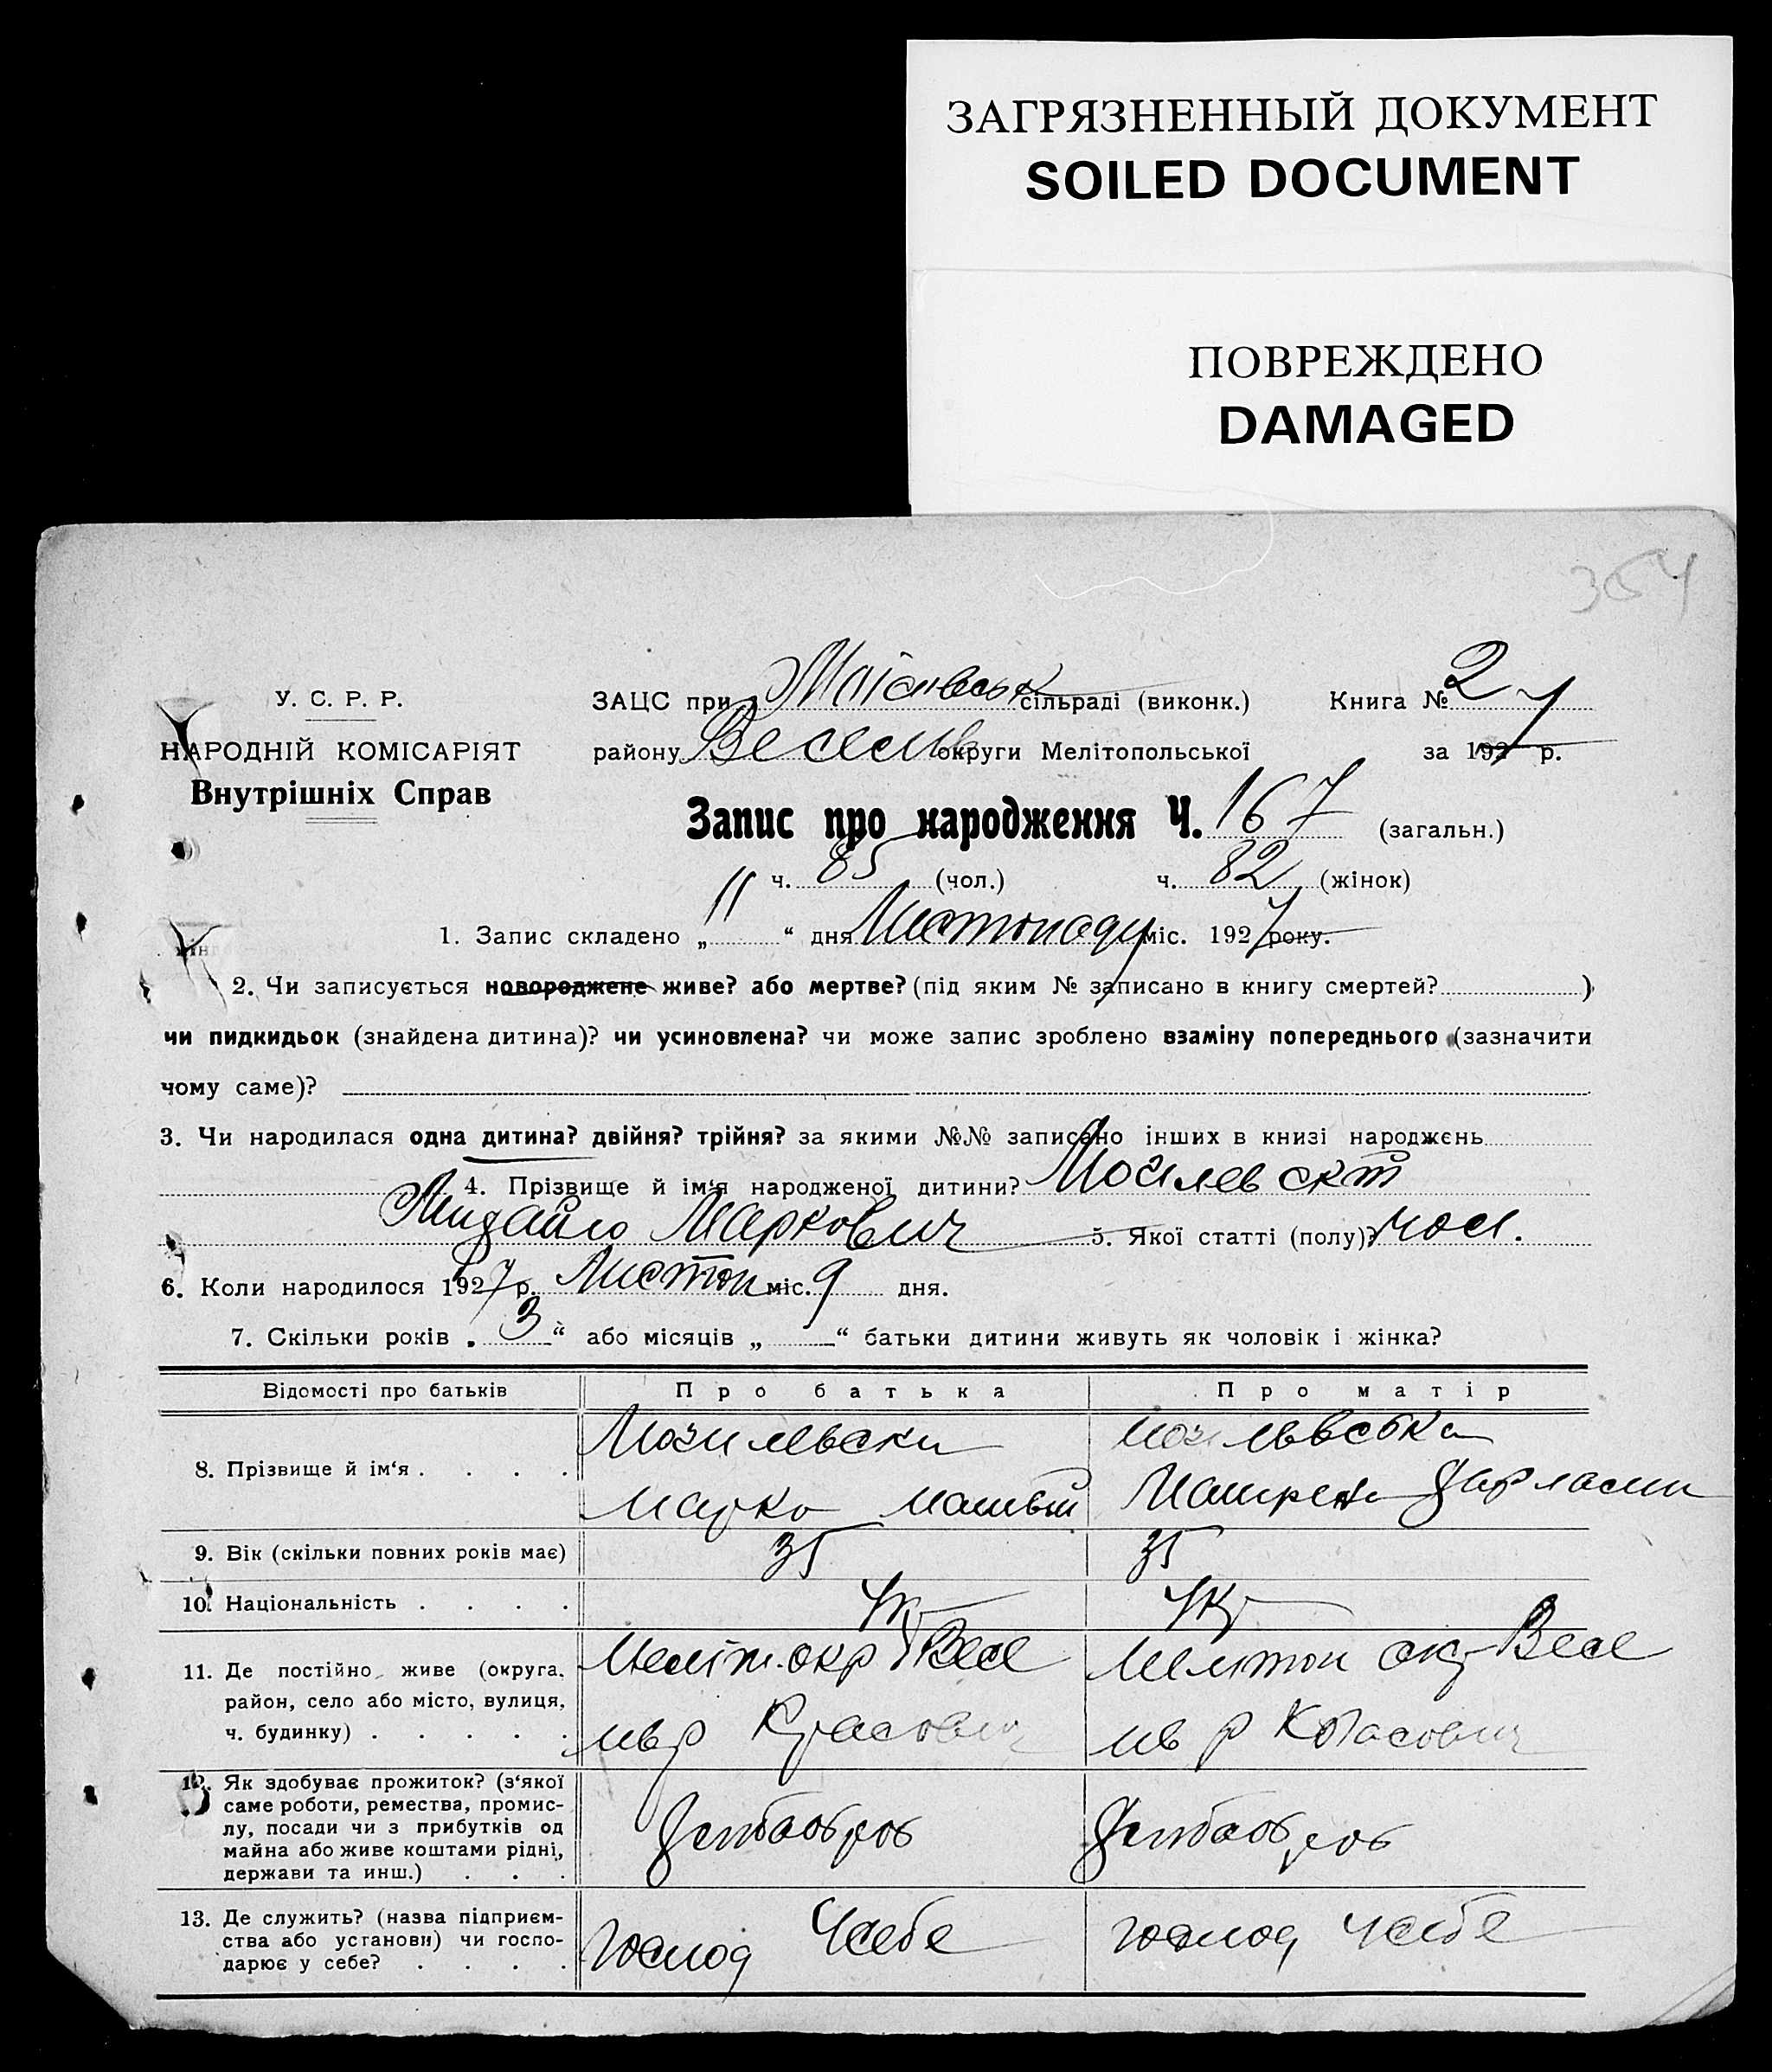 ЗАГРЯЗНЕННЫЙ ДОКУМЕНТ
SOILED DOCUMENT
ПОВРЕЖДЕНО
DAMAGED
354
У. С. Р. Р.
НАРОДНІЙ КОМІСАРІЯТ
Внутрішніх Справ
ЗАЦС при сільраді (виконк.) Книга № 2
району Весели округи Мелітопольської за 1927 р.
Запис про народження Ч. 167 (загальн.)
ч. 85 (чол.) ч. 82 (жінок)
1. Запис складено „ 11 “ дня Листопаду міс. 1927 року.
2. Чи записується новороджене живе? або мертве? (під яким № записано в книгу смертей? )
чи пидкидьок (знайдена дитина)? чи усиновлена? чи може запис зроблено взаміну попереднього (зазначити
чому саме)?
3. Чи народилася одна дитина? двійня? трійня? за якими №№ записано інших в книзі народжень
4. Прізвище й ім‘я народженої дитини?
Михайло Маркович 5. Якої статті (полу)? чол.
6. Коли народилося 1927 р. Листоп міс. 9 дня.
7. Скільки років „ 3 “ або місяців „ “ батьки дитини живуть як чоловік і жінка?
Відомості про батьків Про батька Про матір
8. Прізвище й ім‘я . . . .
Марко
9. Вік (скільки повних років має) 35 35
10. Національність . . . . Укр Укр
11. Де постійно живе (округа,
район, село або місто, вулиця,
ч. будинку) . . . . .
Меліт. окр Весе
Мелитоп окр Весе
12. Як здобуває прожиток? (з‘якої
саме роботи, ремества, промис-
лу, посади чи з прибутків од
майна або живе коштами рідні,
держави та инш.) . . .
13. Де служить? (назва підприєм-
ства або установи) чи госпо-
дарює у себе? . . . .
господ У себе
господ У себе